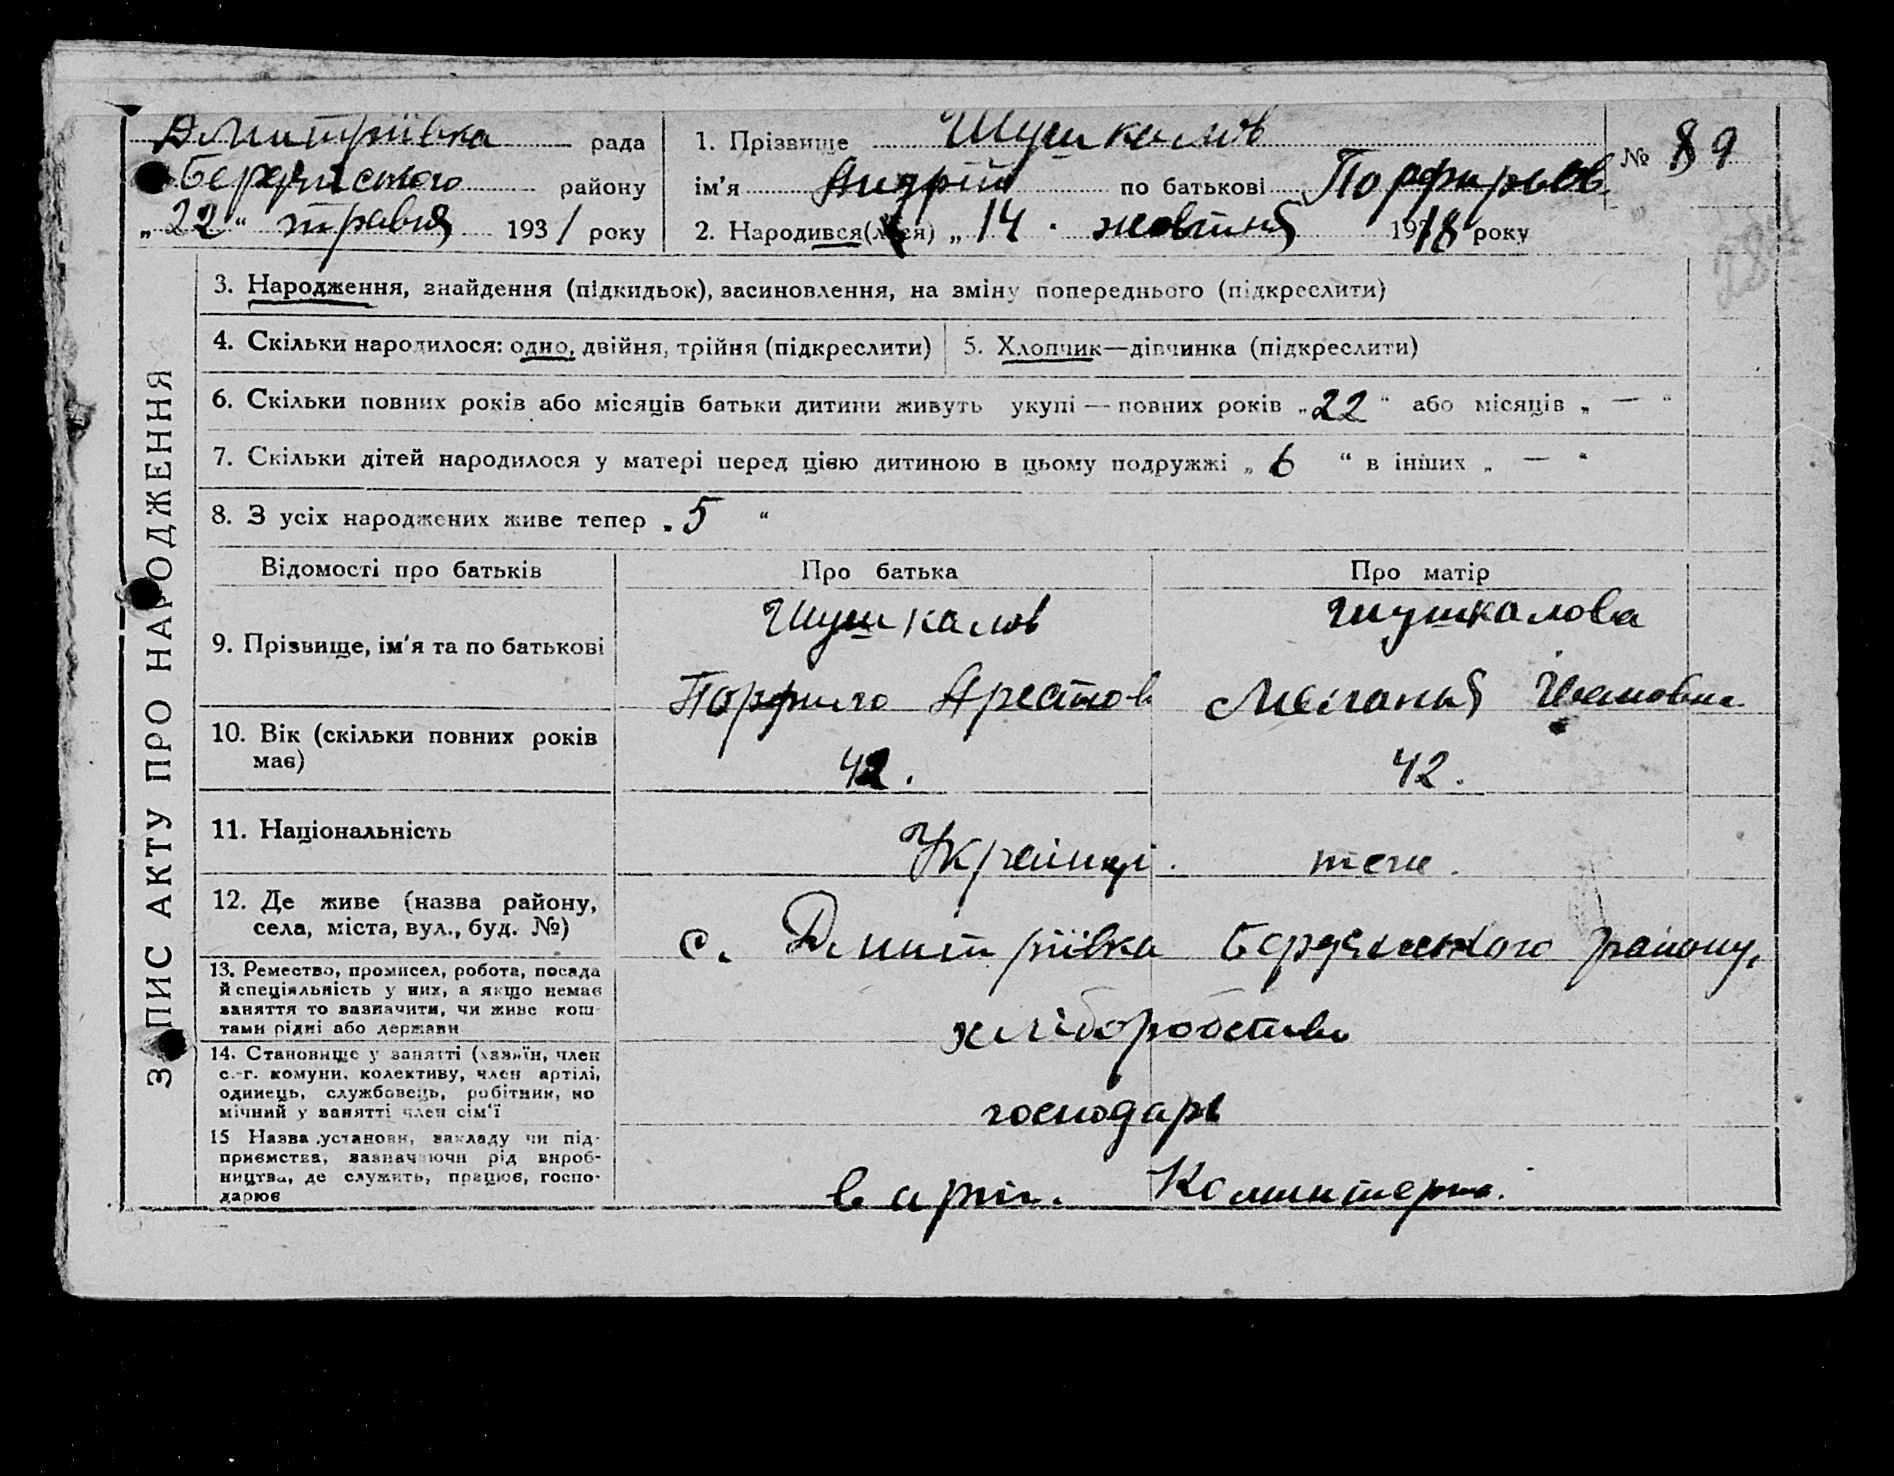 Дмитріївка рада
Бердянського району
„22“ травня 1931 року
1. Прізвище Шушкалов
ім'я Андрій по батькові Порфирьев
2. Народився(лася) „14. жовтня 1918 року
№ 89
3. Народження, знайдення (підкидьок), засиновлення, на зміну попереднього (підкреслити)
4. Скільки народилося: одно, двійня, трійня (підкреслити)
5. Хлопчик—дівчинка (підкреслити)
6. Скільки повних років або місяців батьки дитини живуть укупі — повних років „22“ або місяців „—“
7. Скільки дітей народилося у матері перед цією дитиною в цьому подружжі „6“ в інших „—“
8. З усіх народжених живе тепер „5“
ЗАПИС АКТУ ПРО НАРОДЖЕННЯ
Відомості про батьків Про батька Про матір
9. Прізвище, ім'я та по батькові
Шушкалов
Порфило Арестов
Шушкалова
Меланья Івановна
10. Вік (скільки повних років
має)
42. 42.
11. Національність Українці. теж.
12. Де живе (назва району,
села, міста, вул., буд. №)
с. Дмитріївка Бердянського району,
13. Ремество, промисел, робота, посада
й спеціяльність у них, а якщо немає
заняття то зазначити, чи живе кош-
тами рідні або держави
хліборобство
14. Становище у занятті (хазяїн, член
с.-г. комуни, колективу, член артілі,
одинець, службовець, робітник, по
мічний у занятті член сім'ї
господарь
15 Назва установи, закладу чи під-
приємства, зазначаючи рід вироб-
ництва, де служить, працює, госпо-
дарює
в арт. Комінтерна.